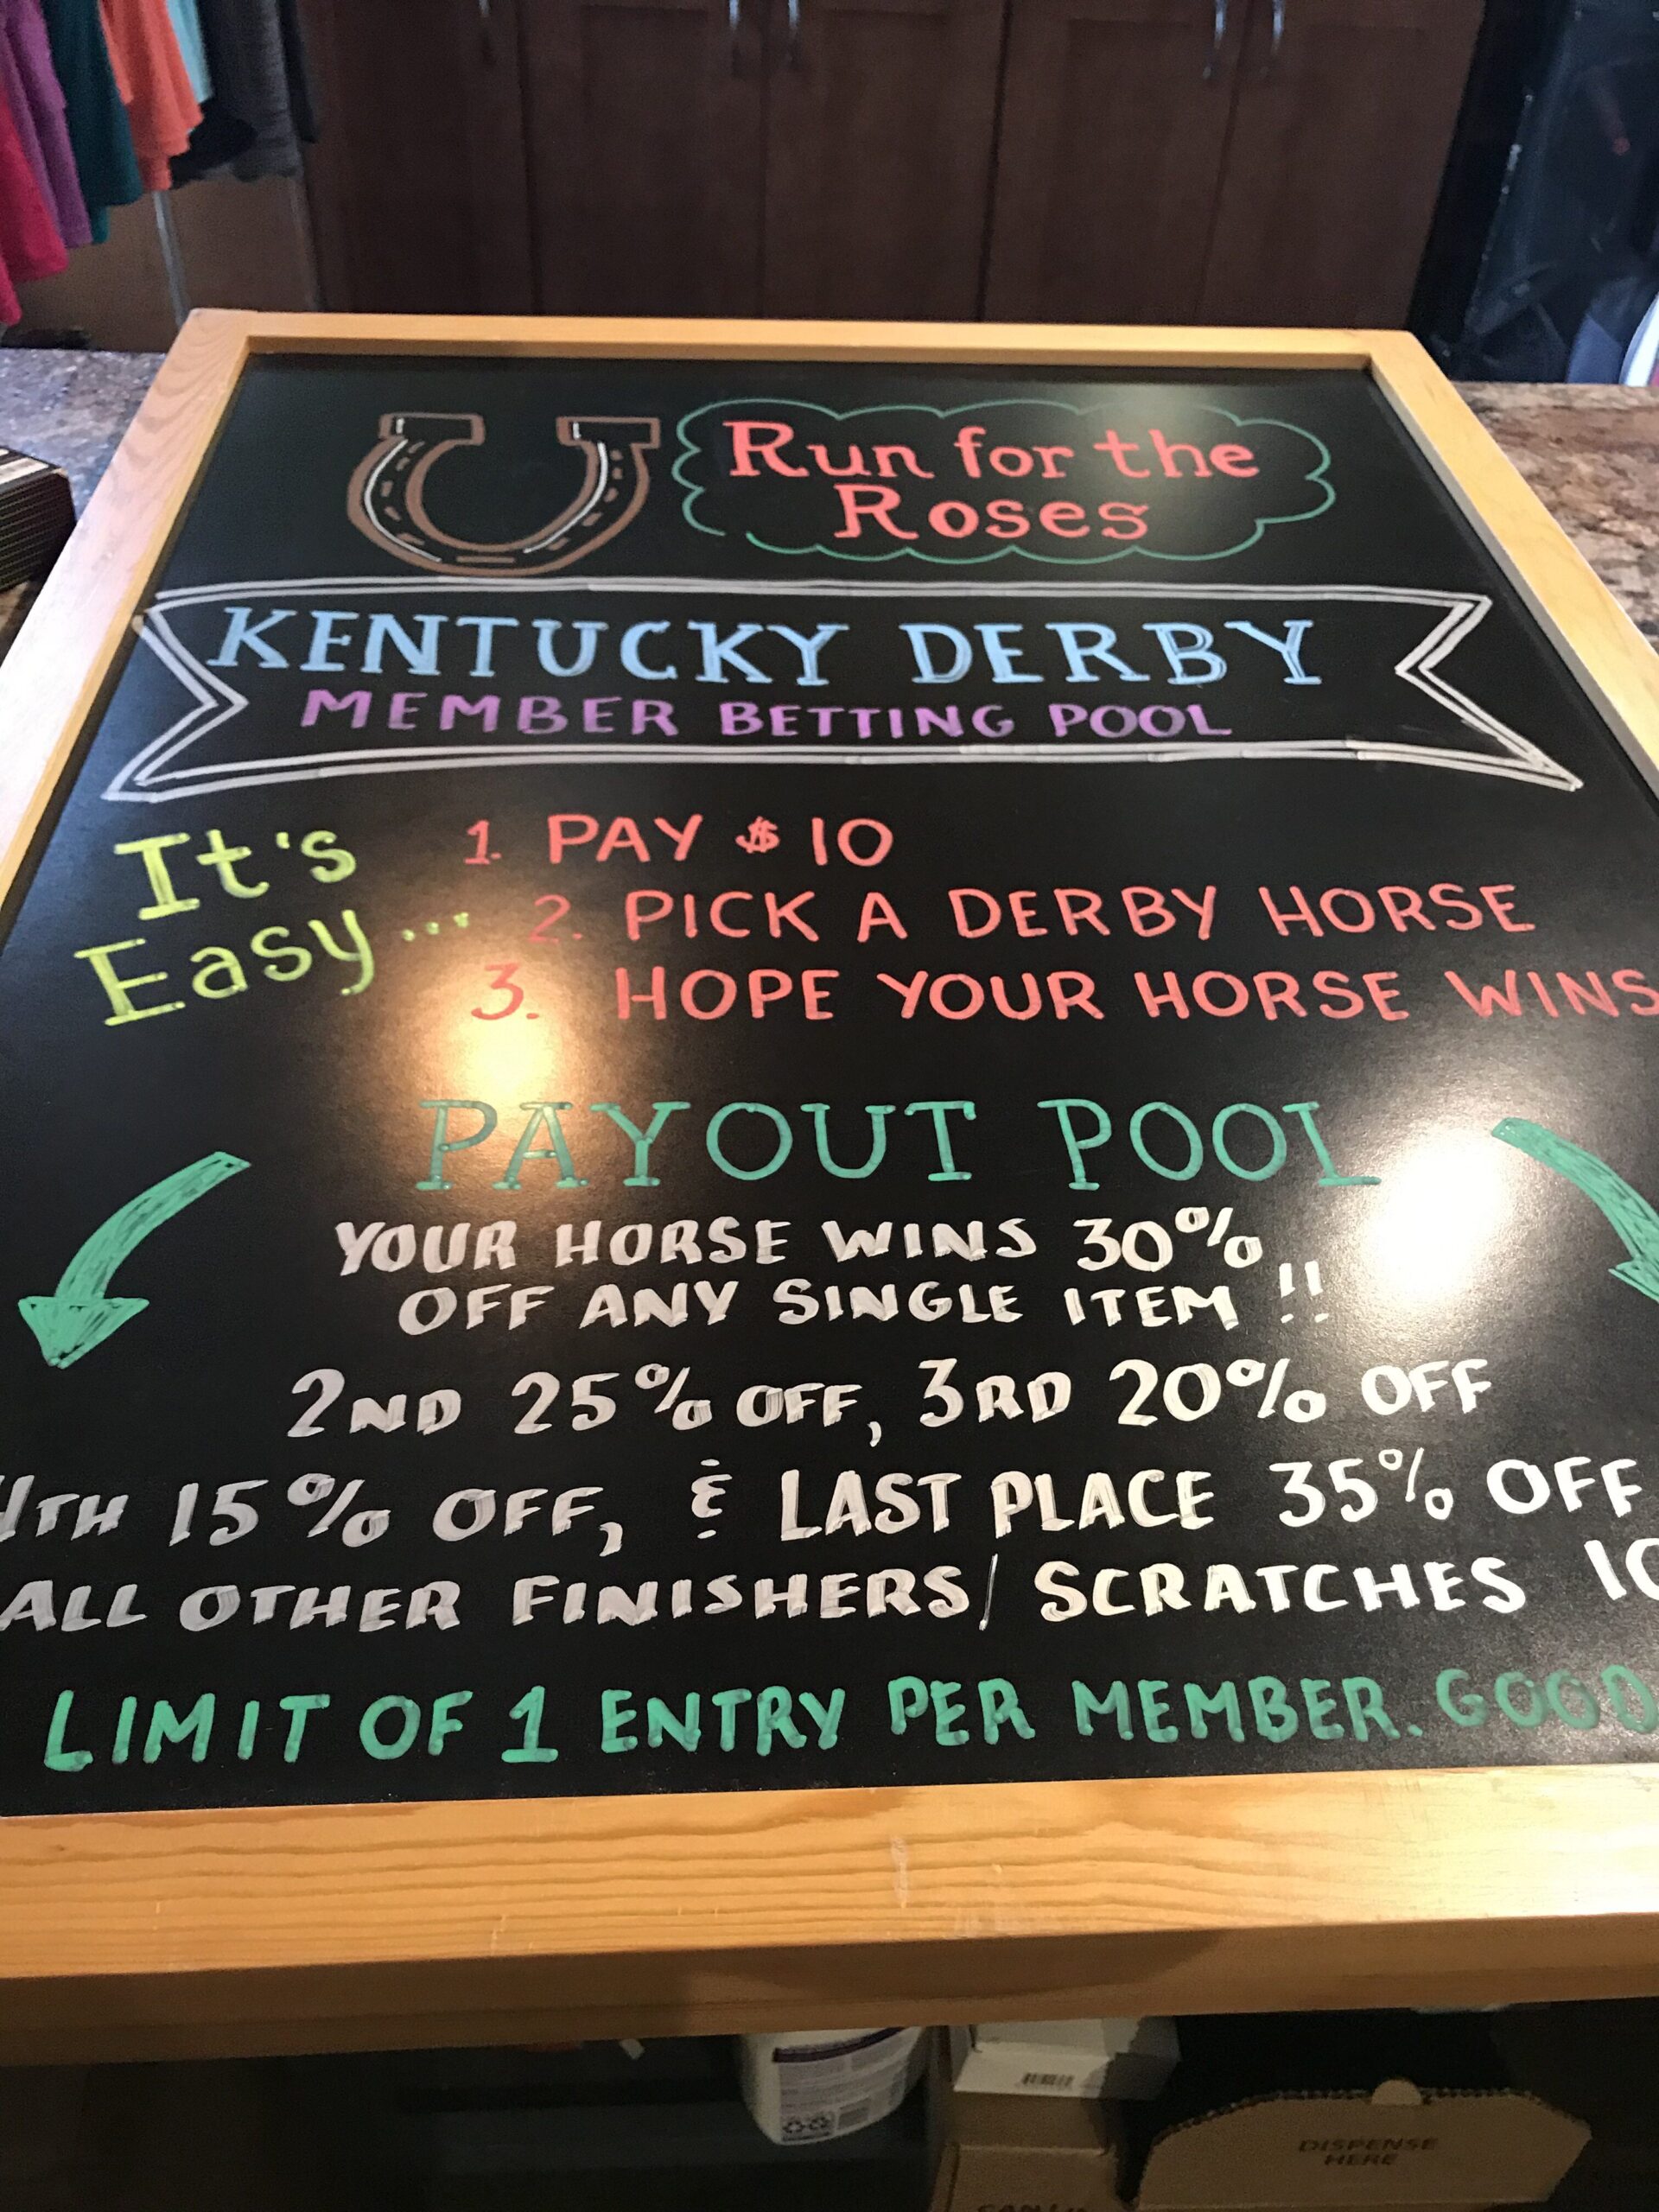 Run for the
Roses
KENTUCKY DERBY
MEMBER BETTING POOL
It's
Easy...
1. PAY $10
2. PICK A DERBY HORSE
3. HOPE YOUR HORSE WINS
PAYOUT POOL
YOUR HORSE WINS 30%
OFF ANY SINGLE ITEM!!
2ND 25% OFF, 3RD 20% OFF
4TH 15% OFF, & LAST PLACE 35% OFF
ALL OTHER FINISHERS/SCRATCHES 10
LIMIT OF 1 ENTRY PER MEMBER. GOOD
DISPENSE
HERE